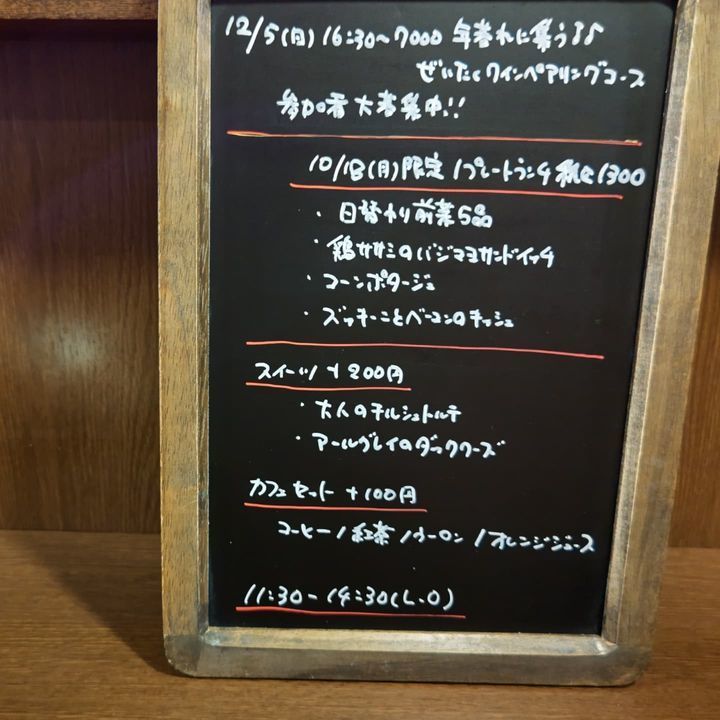 12/5(日) 16:30~7000 年暮れに集う♪♪
ぜいたくワインペアリングコース
参加者大募集中!!
10/18(月)限定 1プレートランチ 税込1300
・日替わり前菜5品
・鶏ササミのバジマヨサンドイッチ
・コーンポタージュ
・ズッキーニとベーコンのキッシュ
スイーツ +200円
・大人のチルシュトルテ
・アールグレイのダックワーズ
カフェセット +100円
コーヒー/紅茶/ウーロン/オレンジジュース
11:30-14:30(L.O)